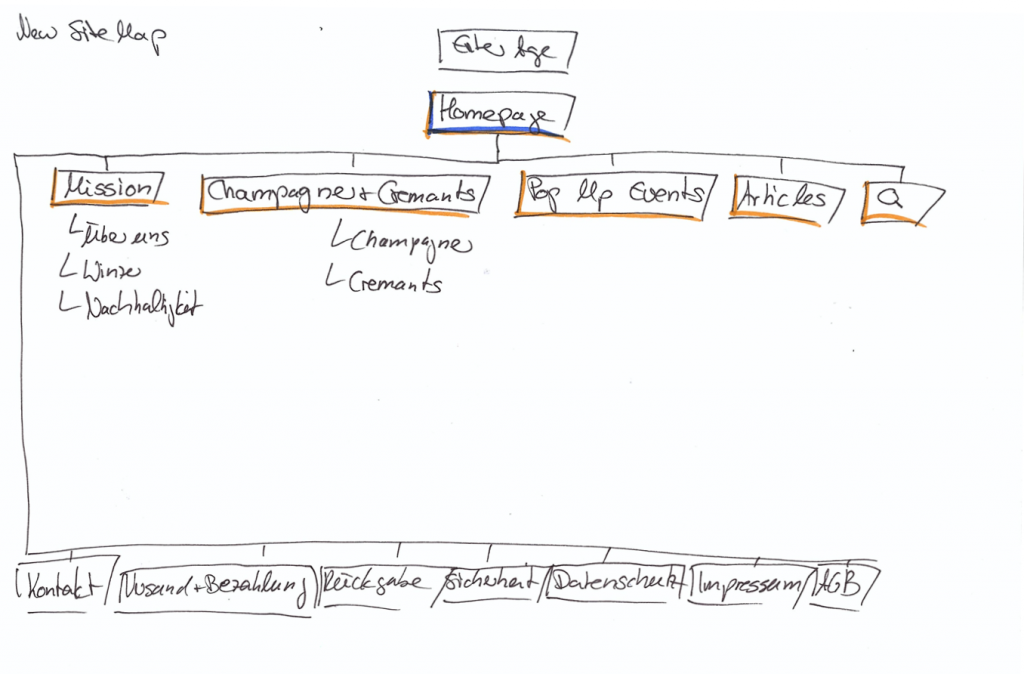 New Site Map
Enter Age
Homepage
Mission
Champagner + Cremants
Pop Up Events
Articles
Über uns
Winzer
Nachhaltigkeit
Champagner
Cremants
Kontakt
Versand + Bezahlung
Rückgabe
Sicherheit
Datenschutz
Impressum
AGB